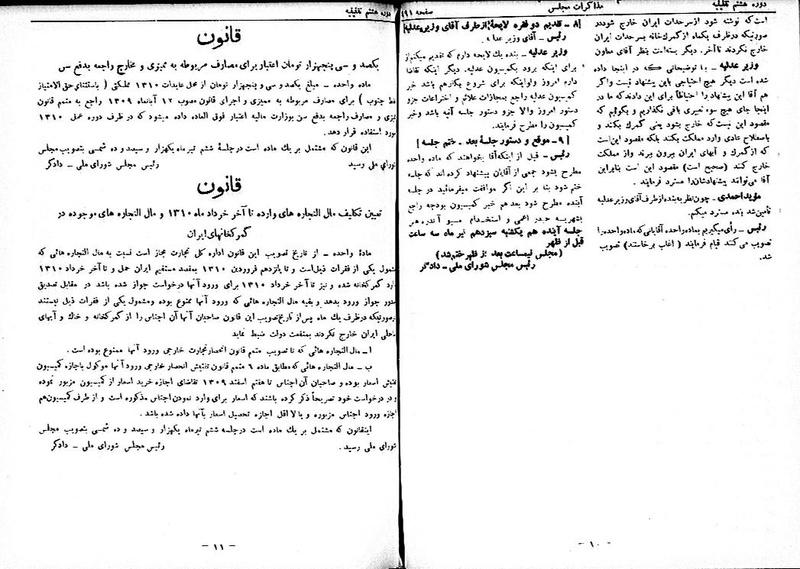 دوره هشتم تقنینیه
مذاکرات مجلس
صفحه ۱۹۱
است که نوشته شود از سرحدات ایران خارج شود در
صورتیکه در ظرف یکماه از گمرک خانه بسرحدات ایران
خارج نکردند تا آخر. دیگر بسته است بنظر آقای معاون
وزیر عدلیه ـ با توضیحاتی که در اینجا داده
شده است دیگر هیچ احتیاجی باین پیشنهاد نیست والا
هم آقا این پیشنهاد را احتیاطاً برای این دادند که ما در
اینجا جای هیچ سوء تعبیری باقی نگذاریم و بگوئیم که
مقصود این نیست که خارج بشود یعنی گمرک بکند و
باصطلاح عادی وارد مملکت بکند بلکه مقصود این است
که از گمرک و آبهای ایران بیرون ببرند و از مملکت
خارج کنند (صحیح است) مقصود این است بنابراین
آقا می‌توانند پیشنهادشان را مسترد فرمایند .
مؤید احمدی ـ چون نظر به بنده از طرف آقای وزیر عدلیه
تأمین شد بنده مسترد میکنم.
رئیس ـ رأی میگیریم بماده واحده آقایانی که ماده واحده را
تصویب می کنند قیام فرمایند ( اغلب برخاستند) تصویب
شد.
[ ۸ ـ تقدیم دو فقره لایحه از طرف آقای وزیر عدلیه ]
رئیس ـ آقای وزیر عدلیه
وزیر عدلیه ـ بنده یک لایحه دارم که تقدیم میکنم از
برای اینکه برود بکمیسیون عدلیه. دیگر اینکه تقاضا
دارم امروز ولو اینکه برای شروع بکار هم باشد خبر
کمیسیون عدلیه راجع بمجازات علائم و اختراعات جزو
دستور امروز والا جزو دستور جلسه آتیه باشد و خبر
کمیسیون را مطرح فرمایند.
[ ۹ ـ موقع و دستور جلسهٔ بعد ـ ختم جلسه ]
رئیس ـ قبل از اینکه آقا بخواهند که ماده واحده
مطرح بشود جمعی از آقایان پیشنهاد کرده اند که جلسه
ختم شود بنا بر این اگر موافقت میفرمائید در جلسه
آینده مطرح شود بعد هم خبر کمیسیون بودجه راجع
بشهریه حیدر اعمی و استخدام مسیو آندره هر
جلسه آینده هم یکشنبه سیزدهم تیر ماه سه ساعت
قبل از ظهر
(مجلس نیمساعت بعد از ظهر ختم شد)
رئیس مجلس شورای ملی ـ دادگر
ـ ۱۰ ـ
دوره هشتم تقنینیه
قانون
یکصد و سی پنجهزار تومان اعتبار برای مصارف مربوطه به ممیزی و مخارج راجعه بدفع سن
ماده واحده ـ مبلغ یکصد و سی و پنجهزار تومان از محل عایدات ۱۳۱۰ مملکتی ( باستثنای حق الامتیاز
نفط جنوب ) برای مصارف مربوطه به ممیزی و اجرای قانون مصوب ۱۲ آبانماه ۱۳۰۹ راجع به متمم قانون
ممیزی و مصارف راجعه بدفع سن بوزارت مالیه اعتبار فوق العاده داده میشود که در ظرف دوره عمل ۱۳۱۰
مورد استفاده قرار دهد.
این قانون که مشتمل بر یک ماده است در جلسهٔ ششم تیرماه یکهزار و سیصد و ده شمسی بتصویب مجلس
شورای ملی رسید.
رئیس مجلس شورای ملی ـ دادگر
قانون
تعیین تکلیف مال التجاره های وارده تا آخر خرداد ماه ۱۳۱۰ و مال التجاره های موجوده در
گمرکخانهای ایران
مادهٔ واحده ـ از تاریخ تصویب این قانون اداره کل تجارت مجاز است نسبت به مال التجاره هائی که
مشمول یکی از فقرات ذیل است و تا پانزدهم فروردین ۱۳۱۰ بمقصد مستقیم ایران حمل و تا آخر خرداد ۱۳۱۰
وارد گمرکخانه شده و نیز تا آخر خرداد ۱۳۱۰ برای ورود آنها درخواست جواز شده باشد در مقابل تصدیق
صدور جواز ورود بدهد و بقیه مال التجاره هائی که ورود آنها ممنوع بوده و مشمول یکی از فقرات ذیل نیستند
در صورتیکه در ظرف یک ماه پس از تاریخ تصویب این قانون صاحبان آنها آن اجناس را از گمرکخانه و خاک و آبهای
ساحلی ایران خارج نکردند بمنفعت دولت ضبط نماید
ا ـ مال التجاره هائی که تا تصویب متمم قانون انحصار تجارت خارجی ورود آنها ممنوع بوده است .
ب ـ مال التجاره هائی که مطابق ماده ۶ متمم قانون تفتیش انحصار خارجی ورود آنها موکول باجازه کمیسیون
تفتیش اسعار بوده و صاحبان آن اجناس تا هفتم اسفند ۱۳۰۹ تقاضای اجازه خرید اسعار از کمیسیون مزبور نموده
و در درخواست خود تصریحاً ذکر کرده باشند که اسعار برای وارد نمودن اجناس مذکوره است و از طرف کمیسیون هم
اجازه ورود اجناس مزبوره و یا لااقل اجازه تحصیل اسعار بآنها داده شده باشد .
این قانون که مشتمل بر یک ماده است در جلسه ششم تیرماه یکهزار و سیصد و ده شمسی بتصویب مجلس
شورای ملی رسید .
رئیس مجلس شورای ملی ـ دادگر
ـ ۱۱ ـ